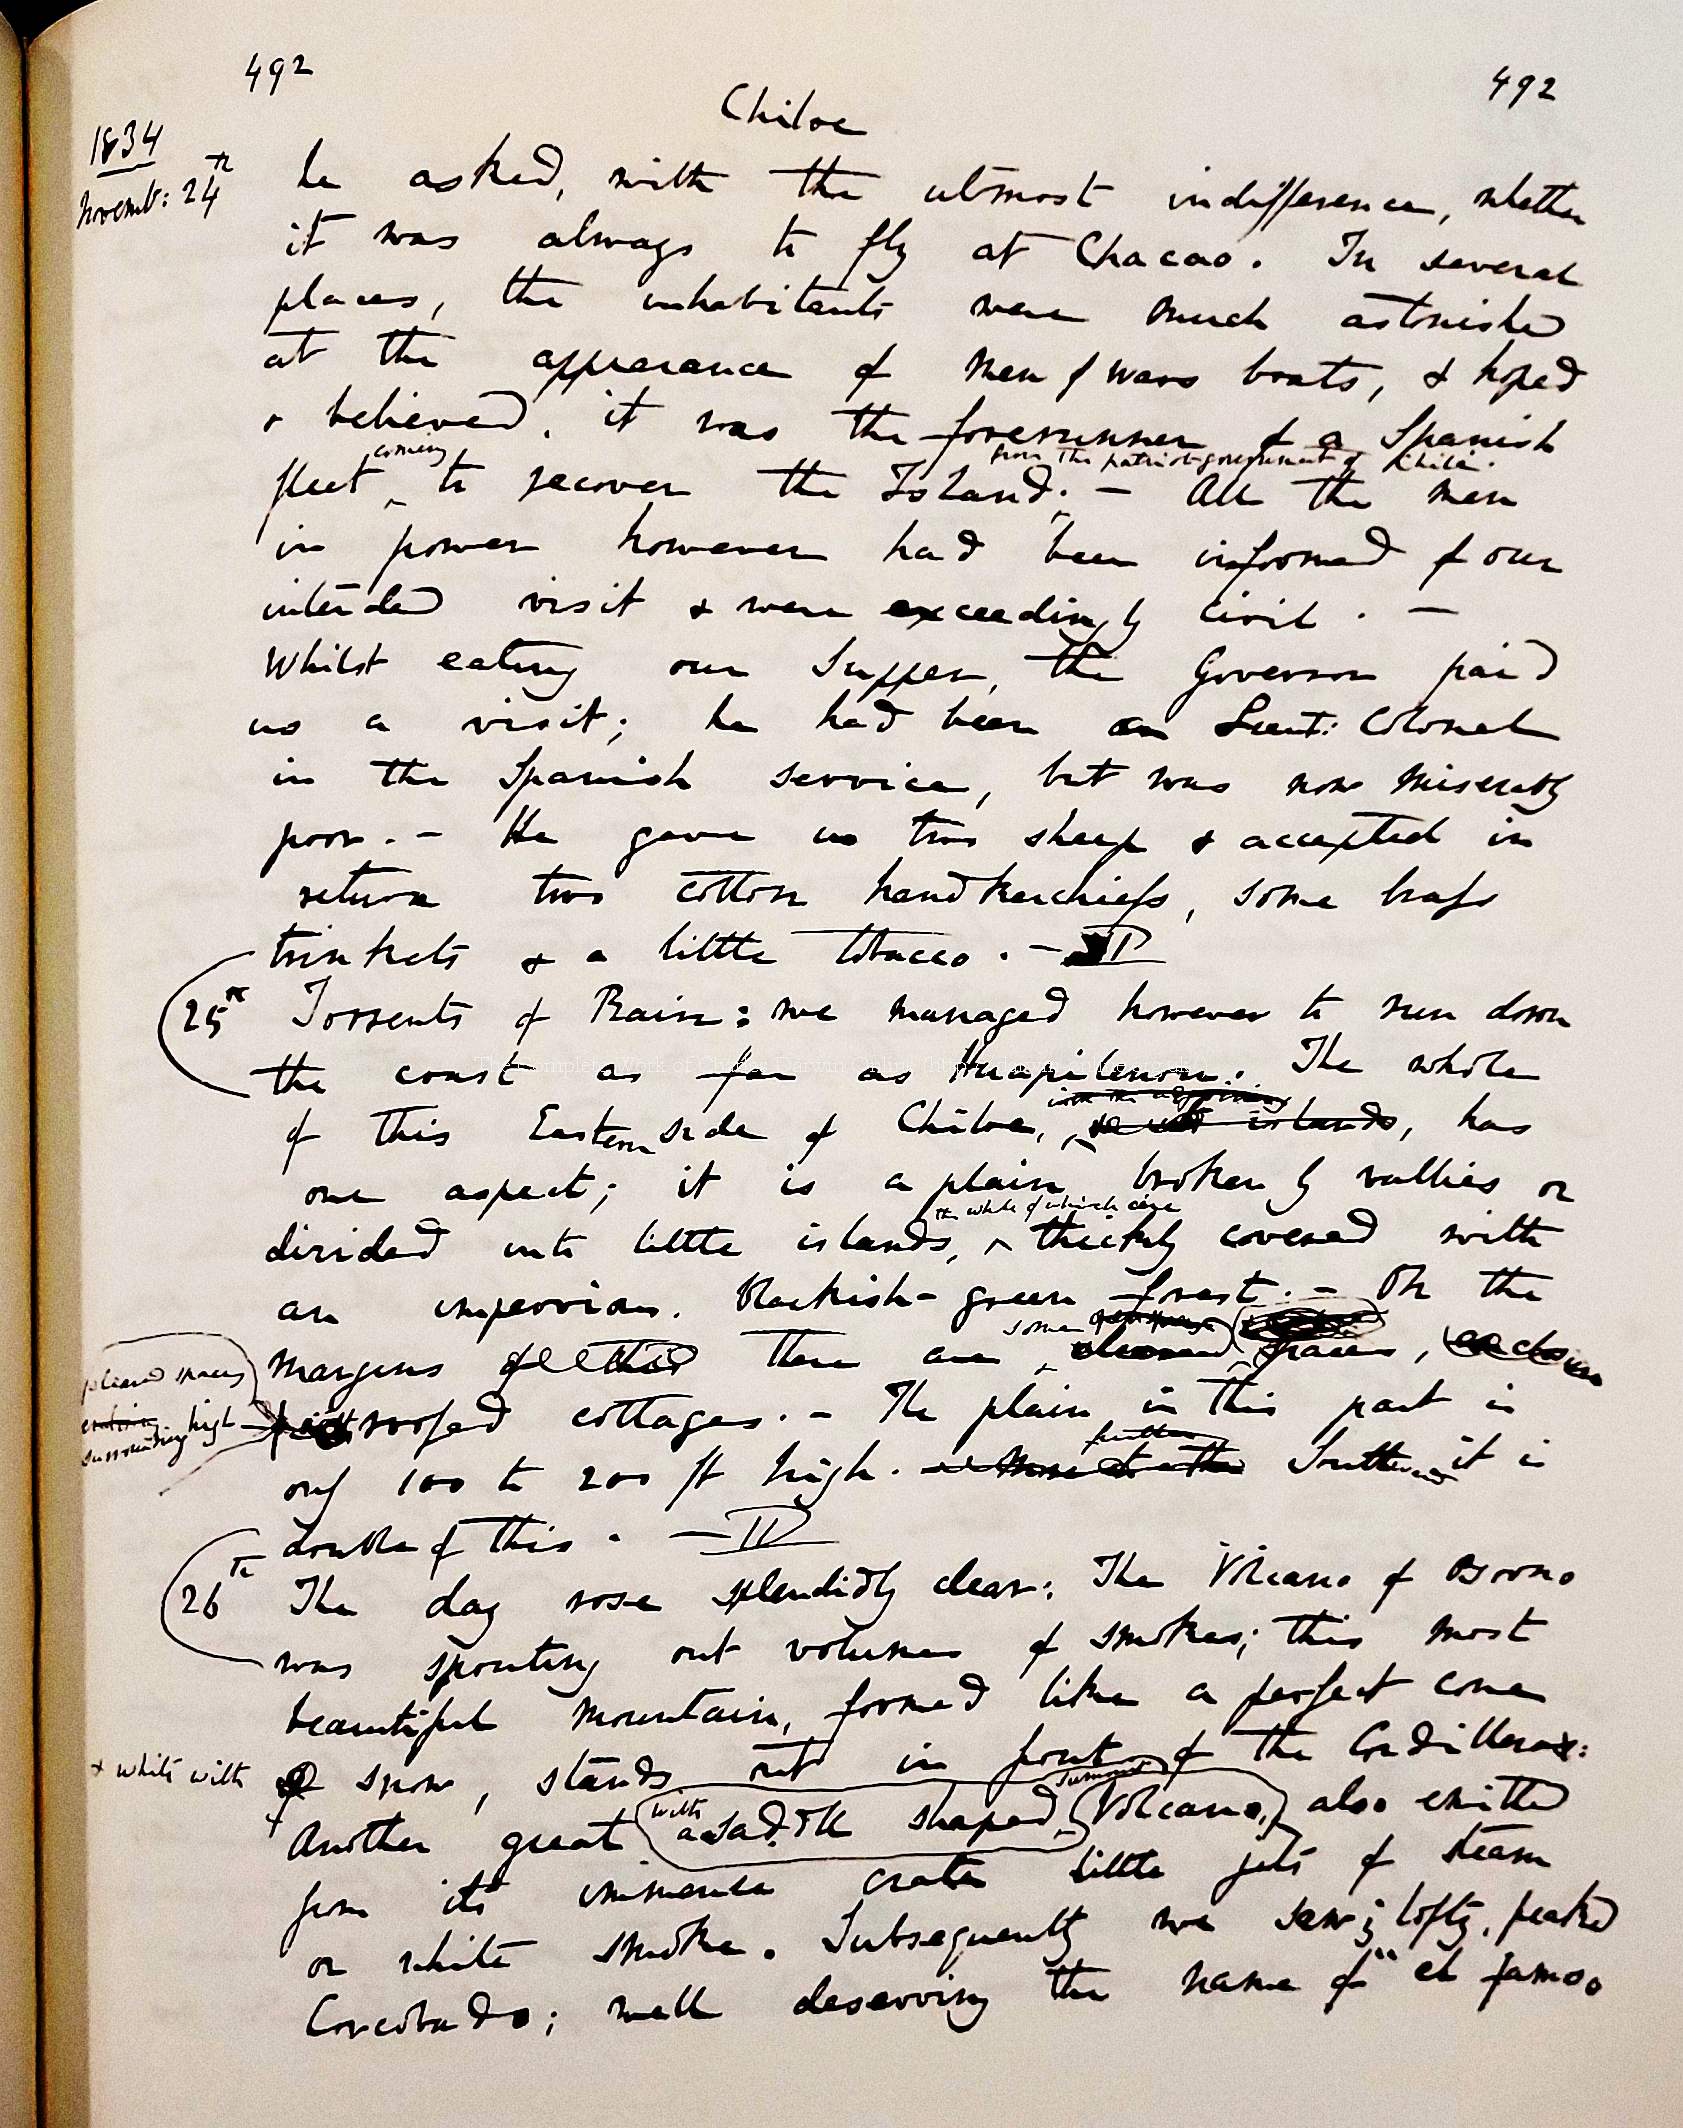 492
492
Chiloe
1834
Novemb: 24th
he asked, with the utmost indifference, whether
it was always to fly at Chacao. In several
places, the inhabitants were much astonished
at the appearance of men of wars boats, & hoped
& believed, it was the forerunner of a Spanish
coming
from the patriot government of Chili.
fleet to recover the Island. — All the men
in power however had been informed of our
intended visit & were exceedingly civil. —
Whilst eating our supper, the Governor paid
us a visit; he had been a Lieut: Colonel
in the Spanish service, but was now miserably
poor. — He gave us two sheep & accepted in
return two cotton handkerchiefs, some brass
trinkets & a little tobacco. —
25th Torrents of Rain: we managed however to run down
the coast as far as Huapilenou. The whole
with the adjoining
of this Eastern side of Chiloe, islands, has
one aspect; it is a plain broken by vallies or
the whole of which are
divided into little islands, thickly covered with
an impervious blackish-green forest. — On the
some
margins of all this there are cleared spaces,
cleared spaces
surrounding high
roofed cottages. — The plain in this part is
further
only 100 to 200 ft high. Southward it is
double of this. —
26th The day rose splendidly clear: The Volcano of Osorno
was spouting out volumes of smoke; this most
beautiful mountain, formed like a perfect cone
& white with
snow, stands out in front of the Cordilleras:
summit
with
Another great a saddle shaped Volcano, also emitted
from its immense crater little jets of steam
or white smoke. Subsequently we saw lofty peaked
Corcobado; well deserving the name of "el famoso